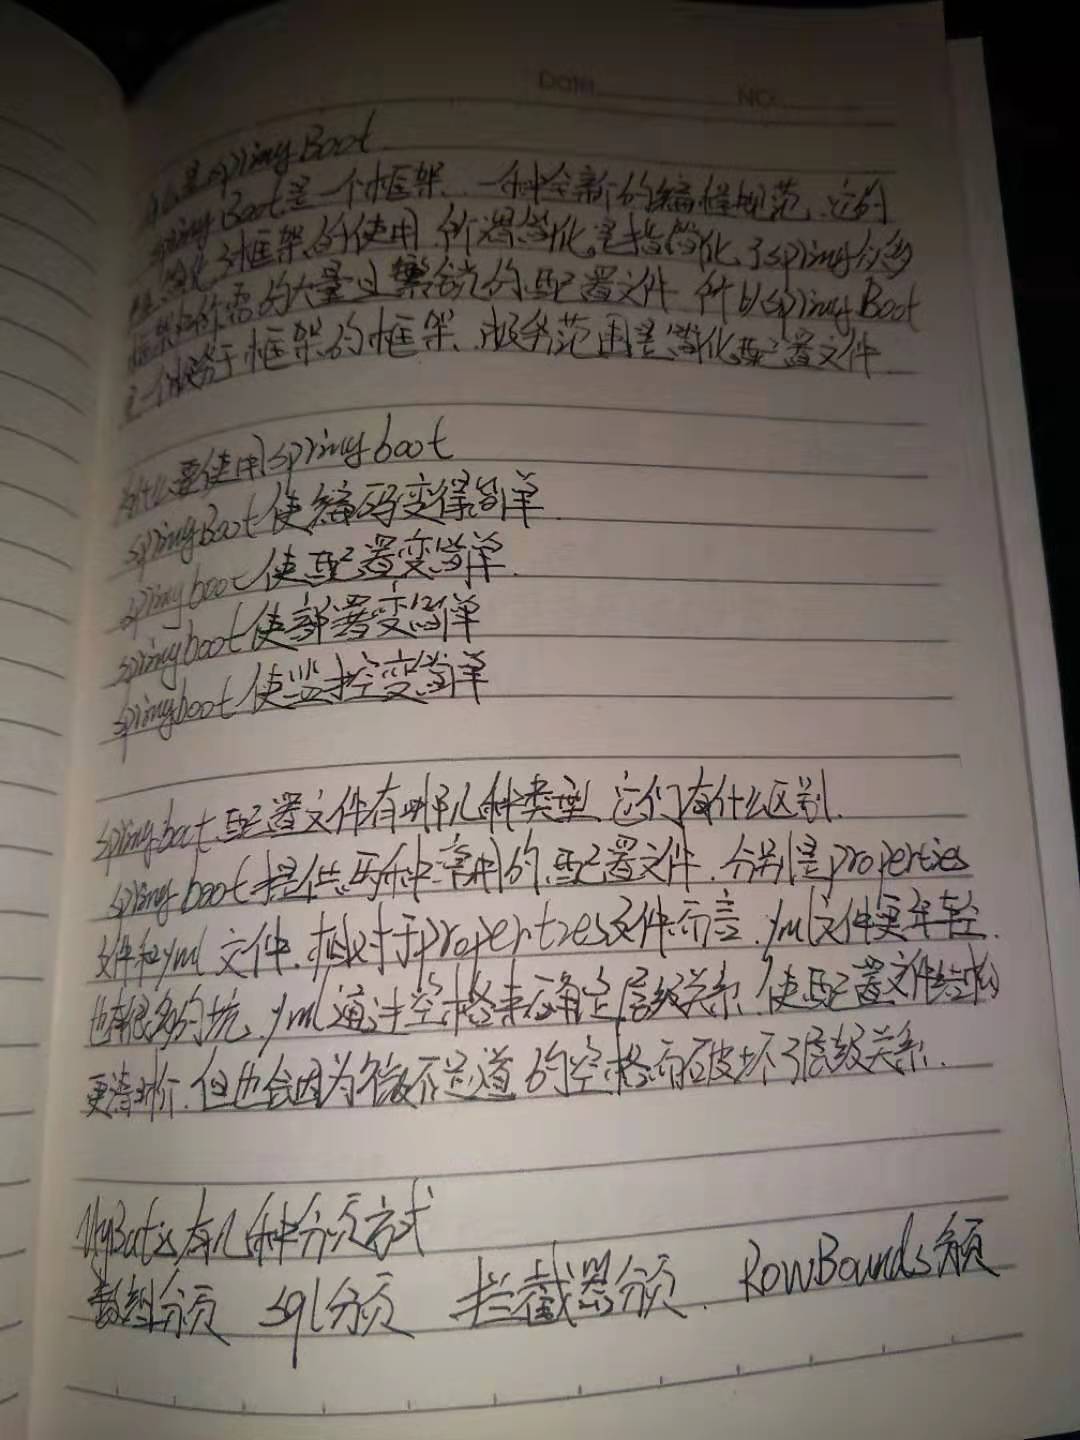 Date NO.
什么是spring Boot
spring Boot是一个框架、一种全新的编程规范、它的
简化了框架的使用 所谓简化是指简化了spring众多
框架中所需的大量且繁锐的配置文件 所以spring Boot
是一个服务于框架的框架、服务范围是简化配置文件
为什么要使用spring boot
spring Boot 使编码变得简单
spring boot 使配置变简单.
spring boot 使部署变简单
spring boot 使监控变简单
spring boot 配置文件有哪几种类型、它们有什么区别.
spring boot 提供两种常用的配置文件. 分别是properties
文件和yml文件. 相对于properties文件而言. yml文件更年轻.
也有很多的坑、yml通过空格来确定层级关系、使配置文件结构
更清晰. 但也会因为微不足道的空格而破坏了层级关系.
MyBatis有几种分页方式
数组分页 sql分页 拦截器分页. RowBounds分页